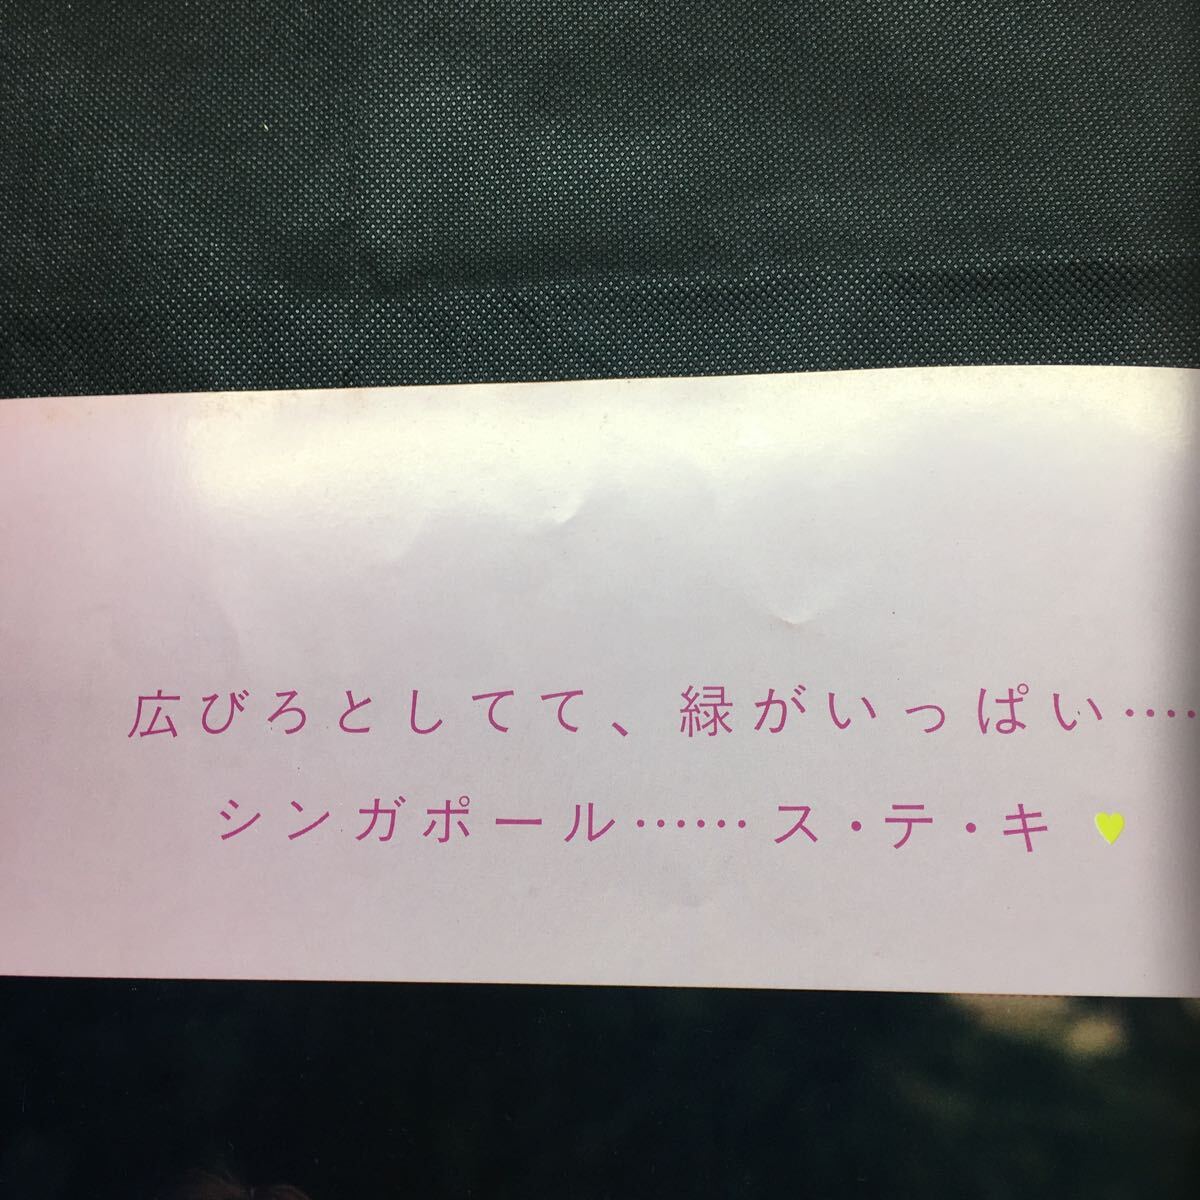 広びろとしてて、緑がいっぱい‥‥
シンガポール……ス・テ・キ♥